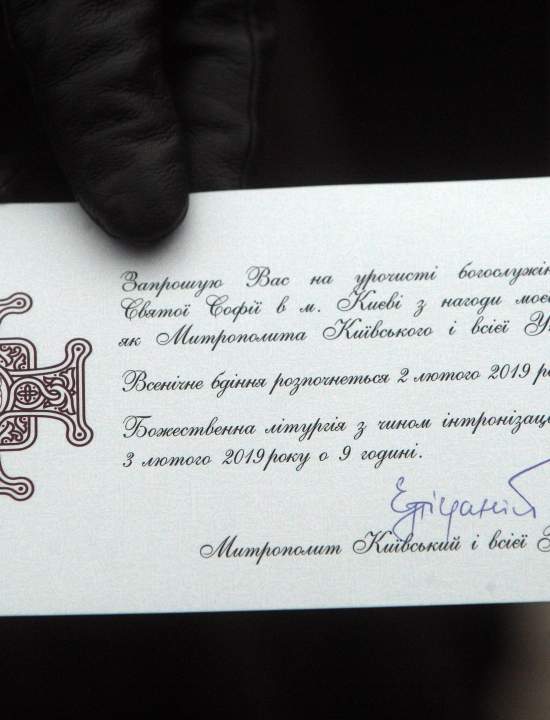 Запрошую Вас на урочисті богослужін
Святої Софії в м. Києві з нагоди моє
як Митрополита Київського і всієї Ук
Всенічне бдіння розпочнеться 2 лютого 2019 ро
Божественна літургія з чином інтронізаці
3 лютого 2019 року о 9 годині.
Епіфаній
Митрополит Київський і всієї У